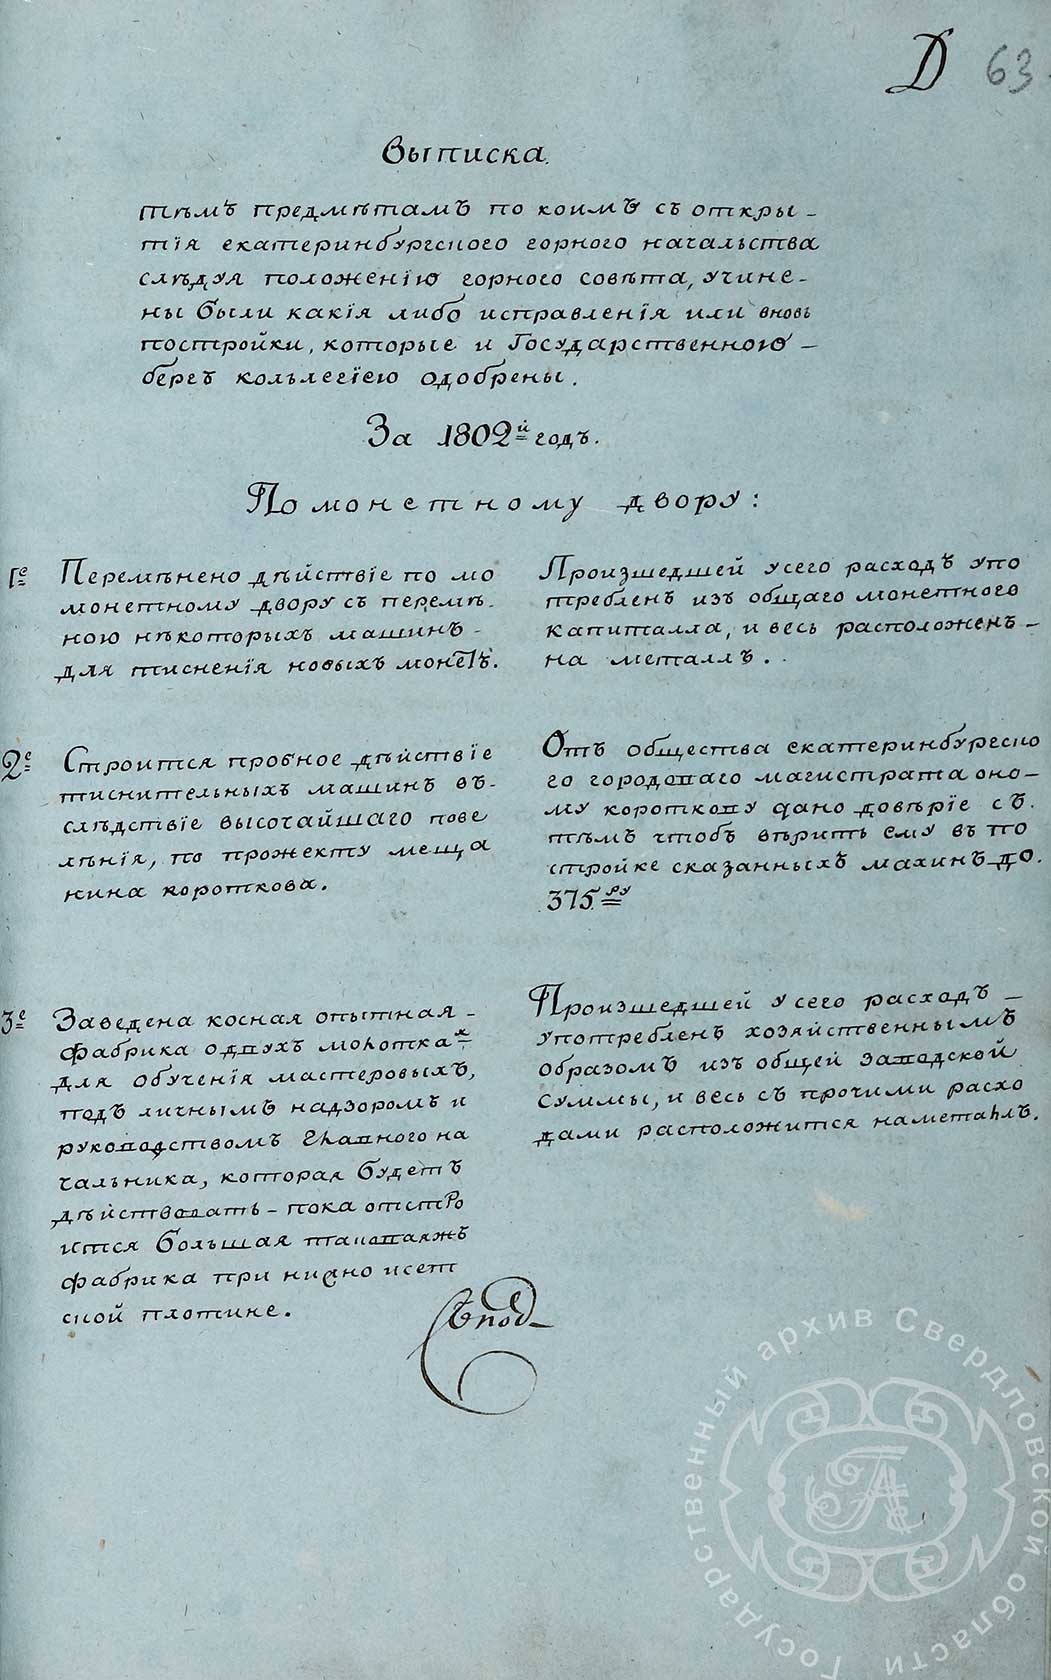 D 63
Выписка.
тѣмъ предмѣтамъ по коимъ съ откры-
тія екатеринбургского горного начальства
слѣдуя положенію горного совѣта, учине-
ны были какія либо исправленія или вновь
постройки, которые и Государственною-
бергъ кольлегіею одобрены.
За 1802й годъ.
По монетному двору:
1е Перемѣнено дѣйствіе по мо
монетному двору съ перемѣ-
ною нѣкоторыхъ машинъ-
для тисненія новыхъ монетъ.
Произшедшей у сего расходъ упо
требленъ изъ общаго монетного
капиталла, и весь расположенъ-
на металлъ.
2е Строится пробное дѣйствіе
тиснительныхъ машинъ въ-
слѣдствіе высочайшаго пове
лѣнія, по прожекту меща
нина короткова.
Отъ общества екатеринбургско
го городоваго магистрата оно-
му короткову дано довѣріе съ
тѣмъ чтобъ вѣрить ему въ по
стройке сказанныхъ махинъ до
375 ру
3е Заведена косная опытная-
фабрика одвухъ молоткахъ
для обученія мастеровыхъ,
подъ личнымъ надзоромъ и
руководствомъ главного на
чальника, которая будетъ
дѣйствовать- пока отстро
ится большая таковаяжъ
фабрика при нижно исет
ской плотине.
Произшедшей у сего расходъ-
употребленъ хозяйственнымъ
образомъ изъ общей заводской
суммы, и весь съ прочими расхо
дами расположится наметаллъ.
Государственный архив Свердловской области
ГА